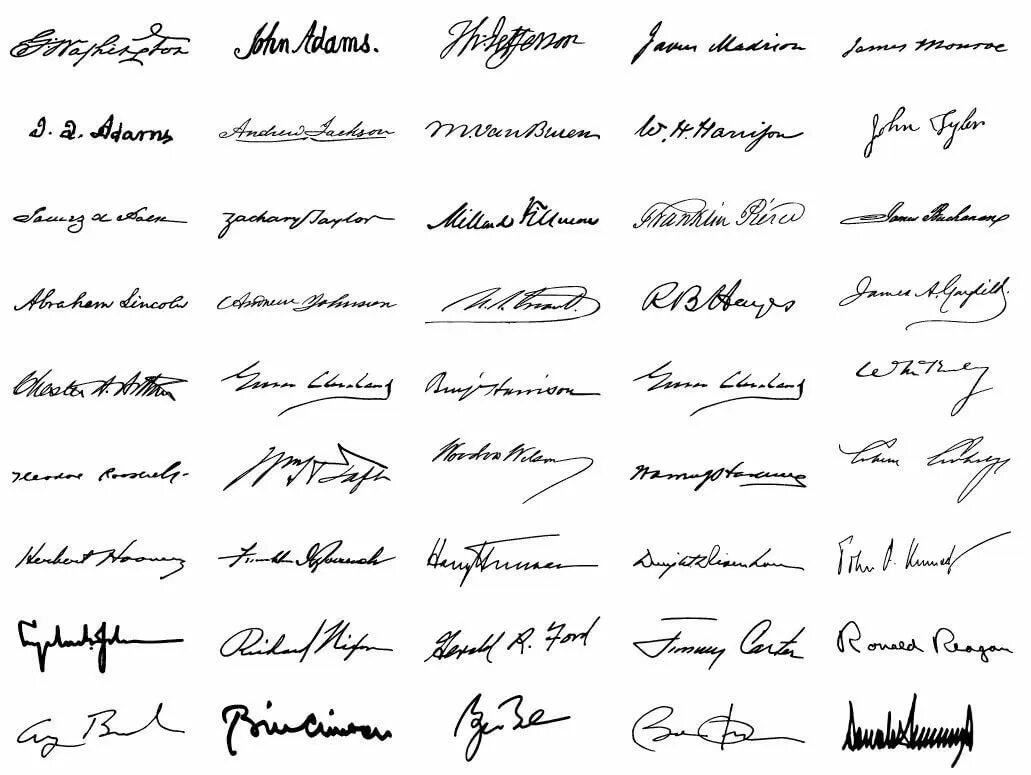 G Washington John Adams. Th Jefferson James Madison James Monroe
J. Q. Adams Andrew Jackson M. Van Buren W. H. Harrison John Tyler
James K Polk Zachary Taylor Millard Fillmore Franklin Pierce James Buchanan
Abraham Lincoln Andrew Johnson U. S. Grant. R B Hayes James A. Garfield.
Chester A. Arthur Grover Cleveland Benj Harrison Grover Cleveland Wm McKinley
Theodore Roosevelt Wm H Taft Woodrow Wilson Warren G Harding Calvin Coolidge
Herbert Hoover Franklin D Roosevelt Harry Truman Dwight D Eisenhower John F. Kennedy
Lyndon B. Johnson Richard Nixon Gerald R. Ford Jimmy Carter Ronald Reagan